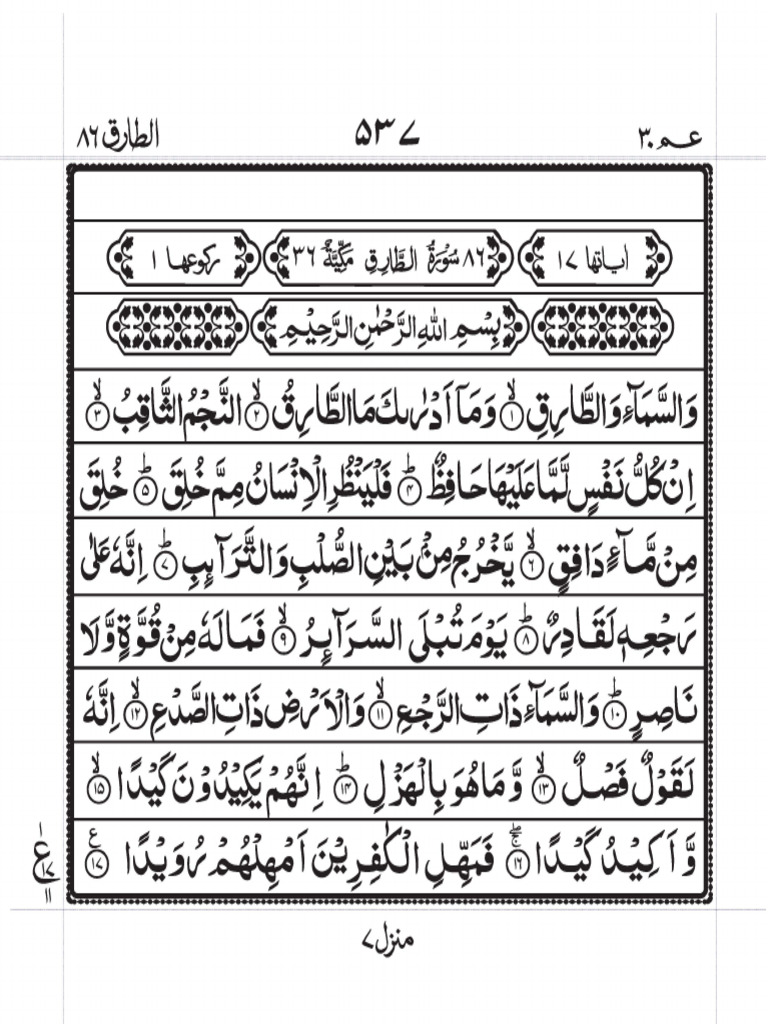 عـم ۳۰ ۵۳۷ الطارق ۸۶
اٰیاتها ۱۷ ۸۶ سُوْرَةُ الطَّارِقِ مَكِّيَّةٌ ۳۶ رکوعها ۱
بِسْمِ اللهِ الرَّحْمٰنِ الرَّحِيْمِ
وَالسَّمَآءِ وَالطَّارِقِ ۙ‏﴿۱﴾ وَمَاۤ اَدْرٰىكَ مَا الطَّارِقُ ۙ‏﴿۲﴾ النَّجْمُ الثَّاقِبُ ۙ‏﴿۳﴾
اِنْ كُلُّ نَفْسٍ لَّمَّا عَلَيْهَا حَافِظٌ ؕ‏﴿۴﴾ فَلْيَنْظُرِ الْاِنْسَانُ مِمَّ خُلِقَ ؕ‏﴿۵﴾ خُلِقَ
مِنْ مَّآءٍ دَافِقٍ ۙ‏﴿۶﴾ يَّخْرُجُ مِنْۢ بَيْنِ الصُّلْبِ وَالتَّرَآئِبِ ؕ‏﴿۷﴾ اِنَّهٗ عَلٰى
رَجْعِهٖ لَقَادِرٌ ؕ‏﴿۸﴾ يَوْمَ تُبْلَى السَّرَآئِرُ ۙ‏﴿۹﴾ فَمَا لَهٗ مِنْ قُوَّةٍ وَّلَا
نَاصِرٍ ؕ‏﴿۱۰﴾ وَالسَّمَآءِ ذَاتِ الرَّجْعِ ۙ‏﴿۱۱﴾ وَالْاَرْضِ ذَاتِ الصَّدْعِ ۙ‏﴿۱۲﴾ اِنَّهٗ
لَقَوْلٌ فَصْلٌ ۙ‏﴿۱۳﴾ وَّمَا هُوَ بِالْهَزْلِ ؕ‏﴿۱۴﴾ اِنَّهُمْ يَكِيْدُوْنَ كَيْدًا ۙ‏﴿۱۵﴾
وَّاَكِيْدُ كَيْدًا ۚۖ‏﴿۱۶﴾ فَمَهِّلِ الْكٰفِرِيْنَ اَمْهِلْهُمْ رُوَيْدًا ‏﴿۱۷﴾ ع
۱ ع ۱۷ ۱۱
منزل ۷